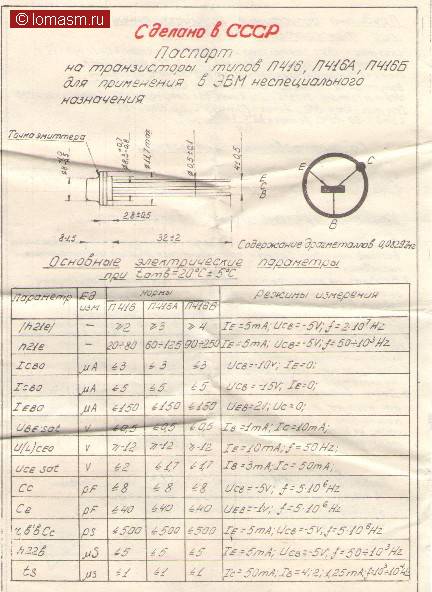 © lomasm.ru
Сделано в СССР
Паспорт
на транзисторы типов П416, П416А, П416Б
для применения в ЭВМ неспециального
назначения
Точка эмиттера
Ø11,7max
Ø0,5±0,1
4±0,5
E
C
B
E
C
B
2,8±0,5
8±1,5
32±2
Содержание драгметаллов
Основные электрические параметры
при tamb=20°C±5°C
Параметр Ед изм Нормы Режимы измерения
П416 П416А П416Б
|h21e| — ≥2 ≥3 ≥4 IE=5mA; UCB=-5V; f=2·10⁷Hz
h21e — 20÷80 60÷125 90÷250 IE=5mA; UCB=-5V; f=50÷10³Hz
ICBO μA ≤3 ≤3 ≤3 UCB=-10V; IE=0;
ICBO μA ≤5 ≤5 ≤5 UCB=-15V; IE=0;
IEBO μA ≤150 ≤150 ≤150 UEB=2V; UC=0;
UBE sat V ≤0,5 ≤0,5 ≤0,5 IB=1mA; IC=10mA;
U(L)CEO V ≥-12 ≥-12 ≥-12 IE=10mA; f=50Hz;
UCE sat V ≤2 ≤1,7 ≤1,7 IB=3mA; IC=50mA;
CC pF ≤8 ≤8 ≤8 UCB=-5V; f=5·10⁶Hz
Ce pF ≤40 ≤40 ≤40 UEB=-1V; f=5·10⁶Hz
r,b'b Cc ps ≤500 ≤500 ≤500 IE=5mA; UCB=-5V; f=5·10⁶Hz
h22b μS ≤5 ≤5 ≤5 IE=5mA; UCB=-5V; f=50÷10³Hz
ts μs ≤1 ≤1 ≤1 IC=50mA; IB=4; 2; 1,25mA;